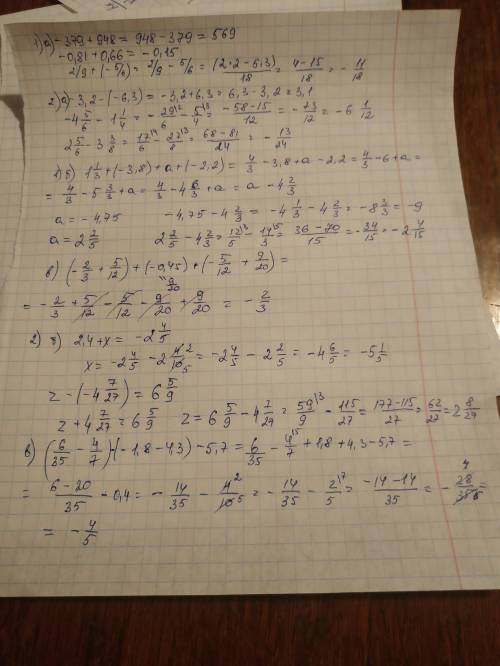 1) а) -379 + 948 = 948 - 379 = 569
-0,81 + 0,66 = -0,15
2/9 + (-5/6) = 2/9 - 5/6 = (2·2 - 5·3)/18 = (4-15)/18 = - 11/18
2) а) -3,2 - (-6,3) = -3,2 + 6,3 = 6,3 - 3,2 = 3,1
-4 5/6 - 1 1/4 = - 29/6 - 5/4 = (-58-15)/12 = - 73/12 = -6 1/12
2 5/6 - 3 3/8 = 17/6 - 27/8 = (68-81)/24 = - 13/24
1) б) 1 1/3 + (-3,8) + a + (-2,2) = 4/3 - 3,8 + a - 2,2 = 4/3 - 6 + a =
= 4/3 - 5 3/3 + a = 4/3 - 4 6/3 + a = a - 4 2/3
a = -4,75 -4,75 - 4 2/3 = -4 1/3 - 4 2/3 = -8 3/3 = -9
a = 2 2/5 2 2/5 - 4 2/3 = 12/5 - 14/3 = (36-70)/15 = - 34/15 = -2 4/15
в) (-2/3 + 5/12) + (-0,45) + (-5/12 + 9/20) =
9/20
= - 2/3 + 5/12 - 5/12 - 9/20 + 9/20 = - 2/3
2) б) 2,4 + x = -2 4/5
x = -2 4/5 - 2 4/10 = -2 4/5 - 2 2/5 = -4 6/5 = -5 1/5
z - (-4 7/27) = 6 5/9
z + 4 7/27 = 6 5/9 z = 6 5/9 - 4 7/27 = 59/9 - 115/27 = (177-115)/27 = 62/27 = 2 8/27
в) (6/35 - 4/7) - (-1,8 - 4,3) - 5,7 = 6/35 - 4/7 + 1,8 + 4,3 - 5,7 =
= (6-20)/35 - 0,4 = - 14/35 - 4/10 = - 14/35 - 2/5 = (-14-14)/35 = - 28/35 =
= - 4/5